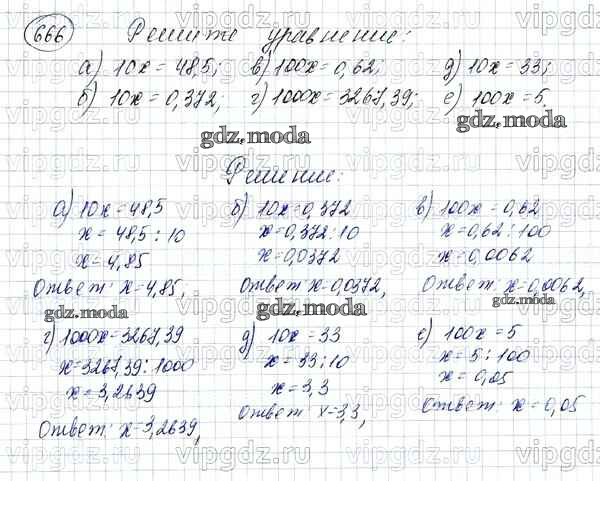 666 Решите уравнение:
а) 10x = 48,5; в) 100x = 0,62; д) 10x = 33;
б) 10x = 0,372; г) 1000x = 3267,39; е) 100x = 5.
gdz.moda gdz.moda
Решение:
а) 10x = 48,5
x = 48,5 : 10
x = 4,85
Ответ: x = 4,85,
б) 10x = 0,372
x = 0,372 : 10
x = 0,0372
Ответ x = 0,0372,
в) 100x = 0,62
x = 0,62 : 100
x = 0,0062
Ответ: x = 0,0062,
gdz.moda gdz.moda gdz.moda
г) 1000x = 3267,39
x = 3267,39 : 1000
x = 3,2639
Ответ: x = 3,2639,
д) 10x = 33
x = 33 : 10
x = 3,3
Ответ: x = 3,3,
е) 100x = 5
x = 5 : 100
x = 0,05
Ответ: x = 0,05
vipgdz.ru vipgdz.ru vipgdz.ru